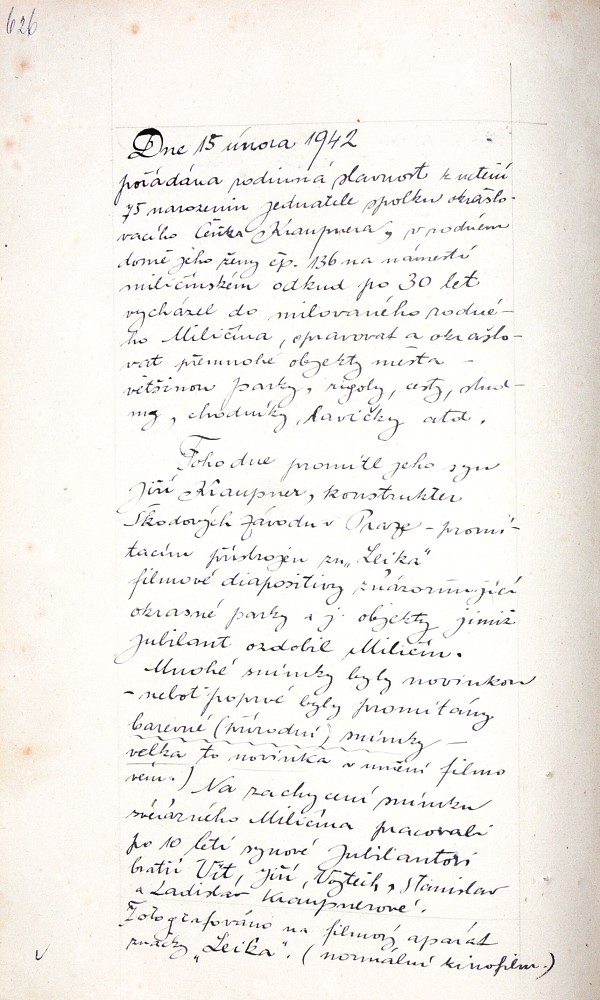 626
Dne 15 února 1942
pořádána rodinná slavnost k uctění
75 narozenin jednatele spolku okrášlo-
vacího Čeňka Kraupnera, v rodném
domě jeho ženy čp. 136 na náměstí
miličínském odkud po 30 let
vycházel do milovaného rodné-
ho Miličína, spravovat a okrášlo-
vat přemnohé objekty města –
většinou parky, rigoly, cesty, stud-
ny, chodníky, lavičky atd.
Toho dne promítl jeho syn
Jiří Kraupner, konstruktér
Škodových závodů v Praze – promí-
tacím přístrojem zn. „Leika“
filmové diapositivy znázorňující
okrasné parky a j. objekty jimiž
jubilant ozdobil Miličín.
Mnohé snímky byly novinkou
– neboť poprvé byly promítány
barevné (přírodní) snímky –
velká to novinka v umění filmo
vém.) Na zachycení snímků
svérázného Miličína pracovali
po 10 letí synové jubilantovi
bratři Vít, Jiří, Vojtěch, Stanislav
a Ladislav Kraupnerové.
Fotografováno na filmový aparát
značky „Leika“. (normální kinofilm.)